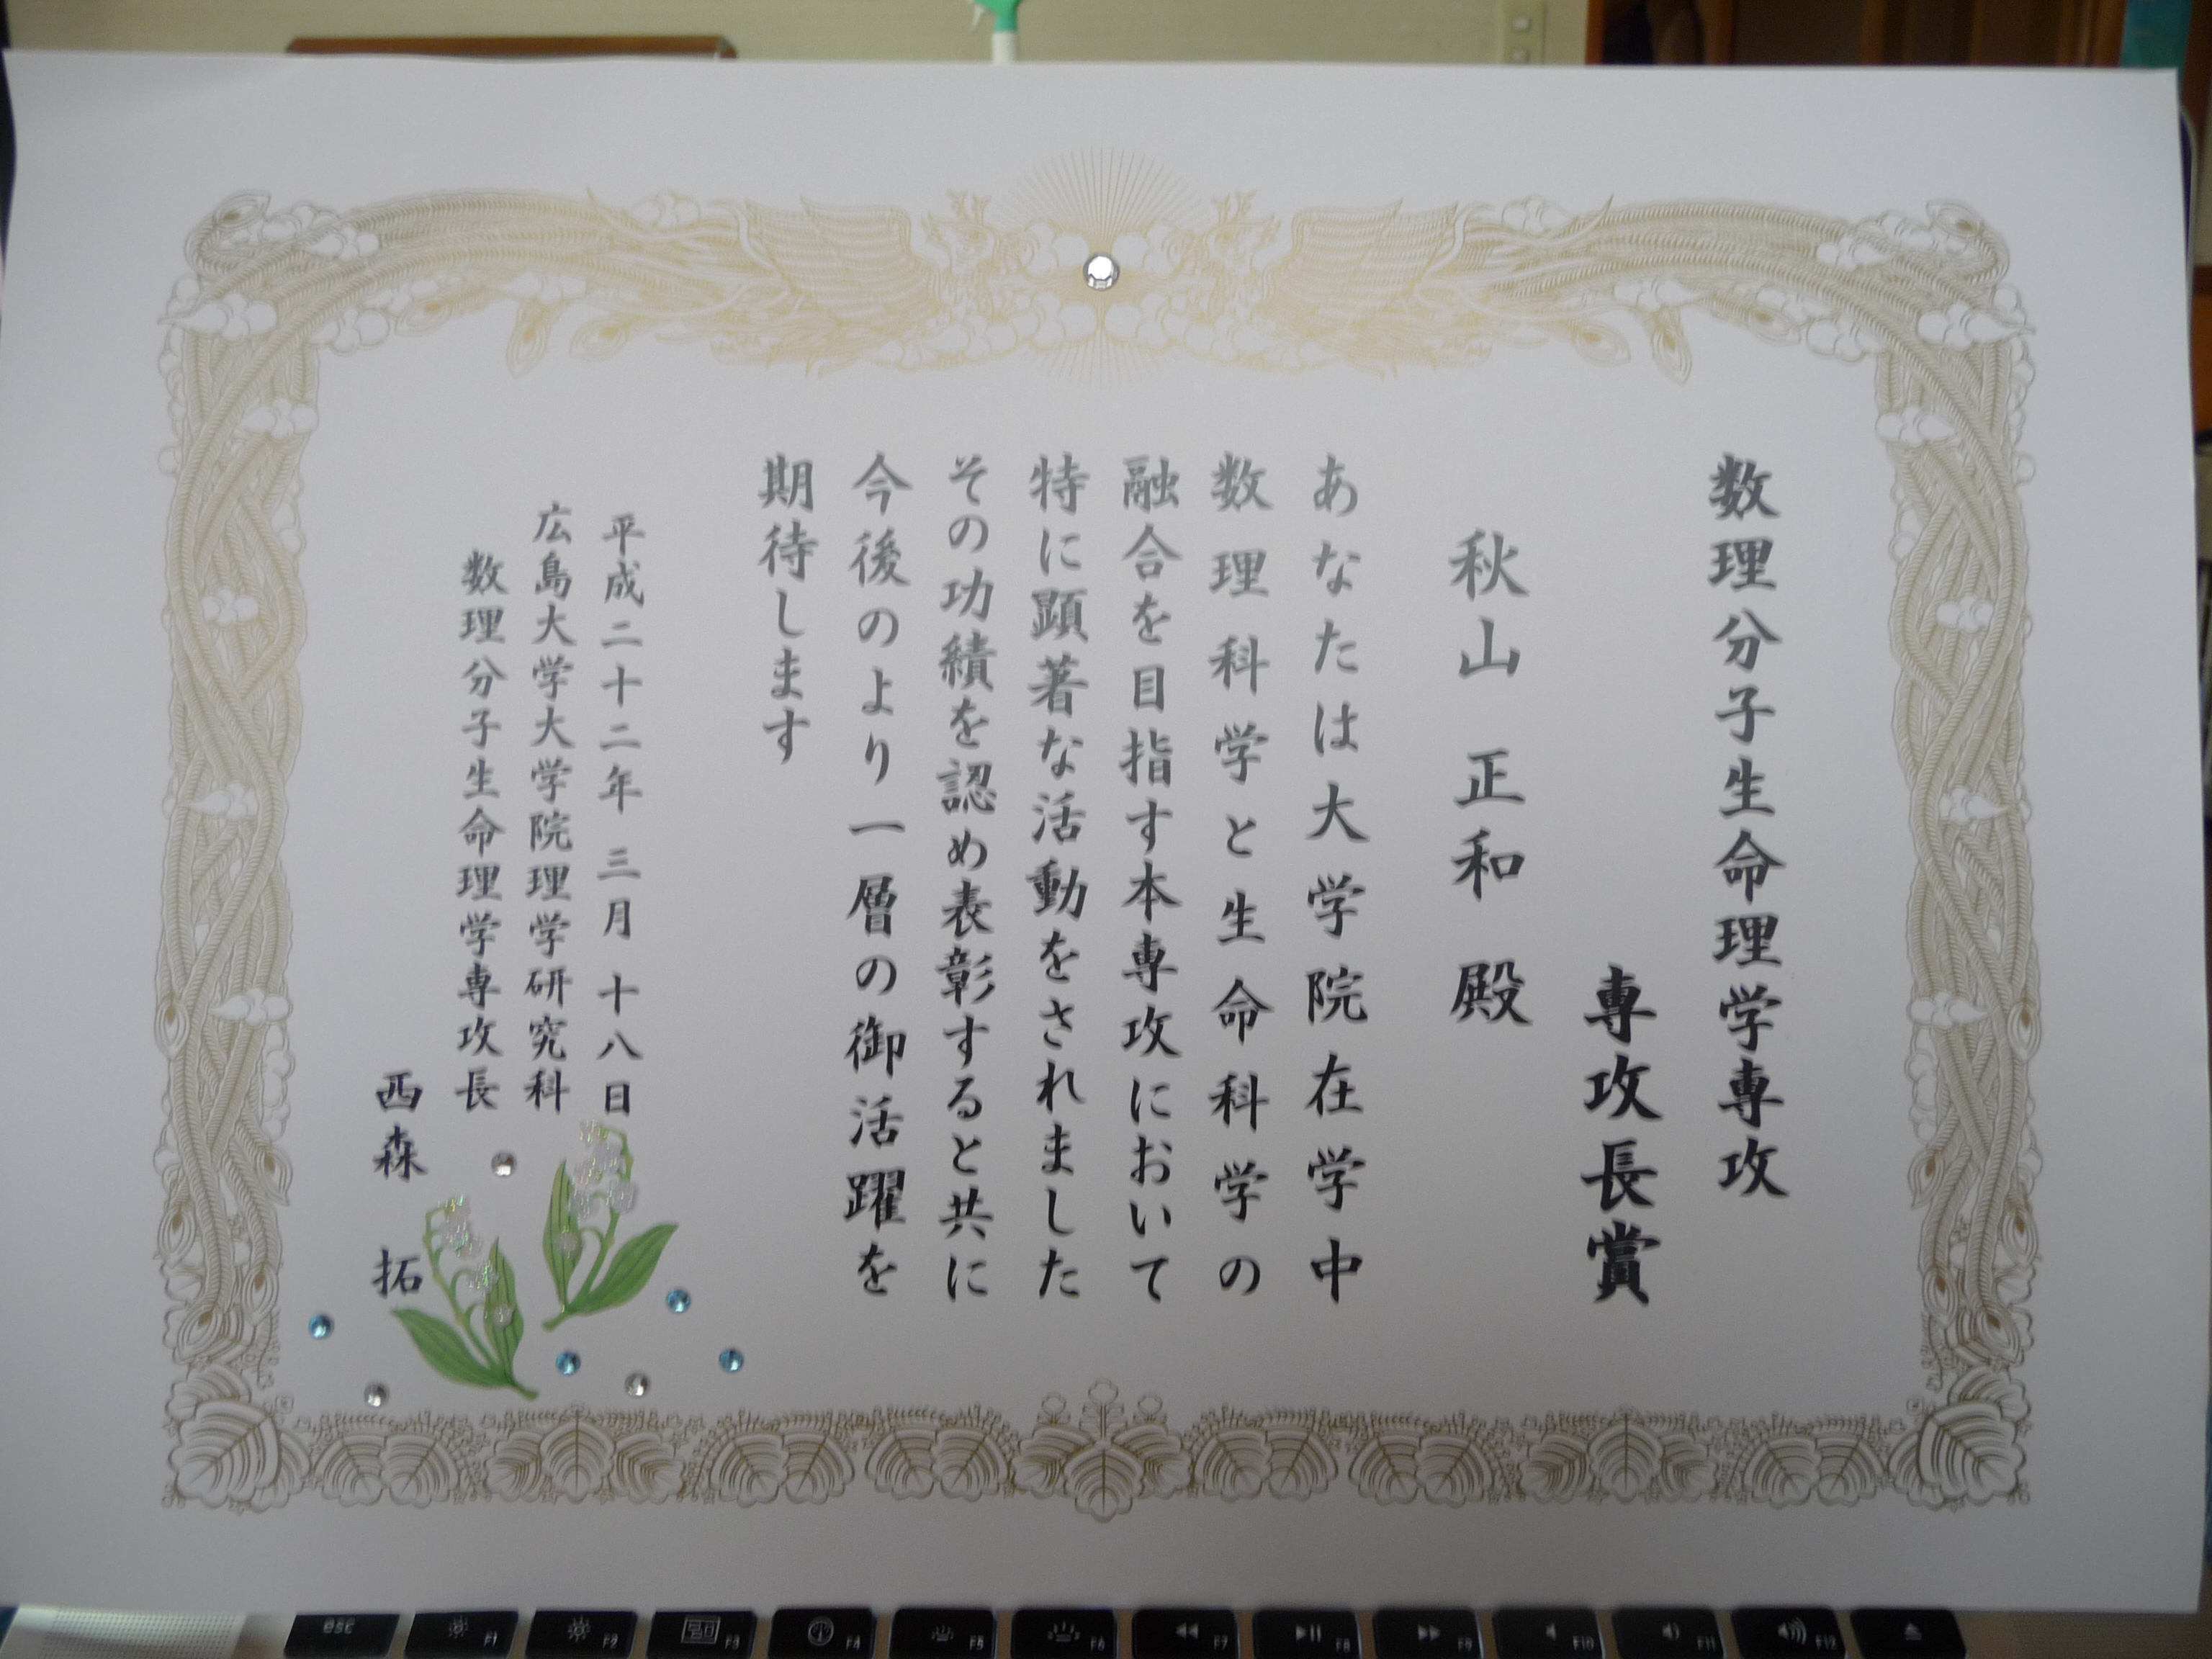 数理分子生命理学専攻
専攻長賞
秋山 正和 殿
あなたは大学院在学中
数理科学と生命科学の
融合を目指す本専攻において
特に顕著な活動をされました
その功績を認め表彰すると共に
今後のより一層の御活躍を
期待します
平成二十二年 三月 十八日
広島大学大学院理学研究科
数理分子生命理学専攻長
西森 拓
esc
F1
F2
F3
F4
F5
F6
F7
F8
F9
F10
F11
F12